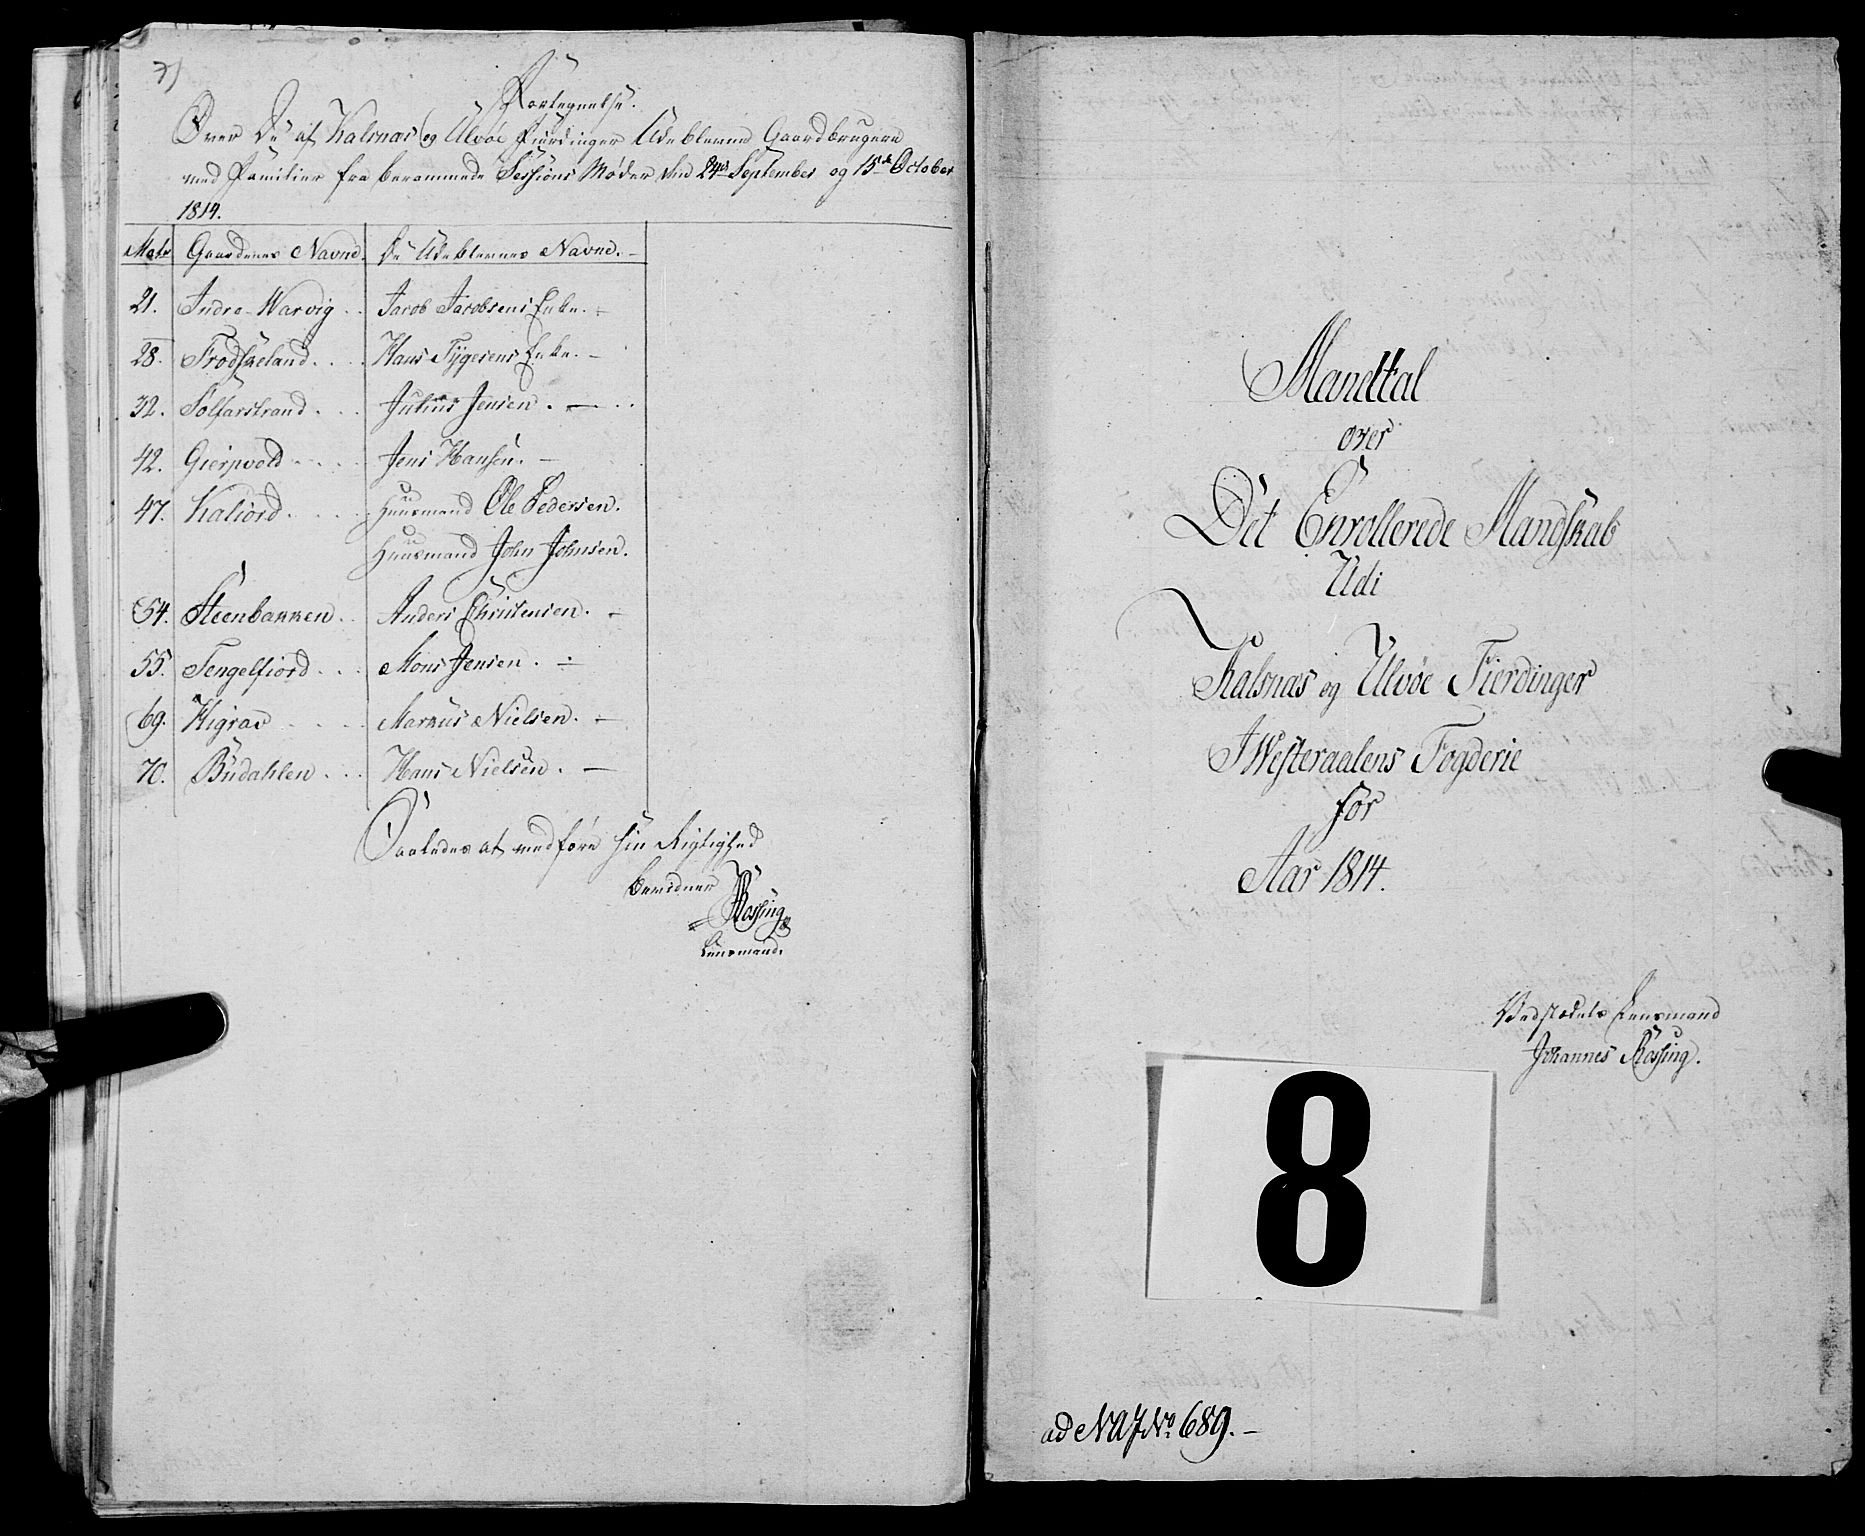 7)
Fortegnelse.
Over De af Kalsnæs og Ulvøe Fierdinger Udeblevne Gaardbrugere
med Familier fra berammede Sessions Møder den 24de September og 15de October
1814.
Matr Gaardenes Navne. De Udeblevnes Navne. -
21. Indre-Warvig . . Jacob Jacobsens Enke. -
28. Frodskeland. . . . Hans Tygesens Enke. -
32. Solfarstrand . . . Julius Jensen . - . .
42. Gierpvold . . . . Jens Hansen. -
47. Kaliord. . . . . Huusmand Ole Pedersen.
Huusmand John Johnsen.
54. Steenbakken. . Anders Christensen. -
55. Tengelfiord . . . Mons Jensen . -
69. Higrav . . . . Markus Nielsen. -
70. Budahlen . . . Hans Nielsen . -
Saaledes at medføre sin Rigtighed
bevidner
Rossing
Lensmand.
Mandtal
over
Det Enrollerede Mandskab
Udi
Kalsnæs og Ulvøe Fierdinger
I Westeraalens Fogderie
for
Aar 1814.
Vedstædets Lensmand
Johannes Rossing.
8
ad NAJ No. 689. -